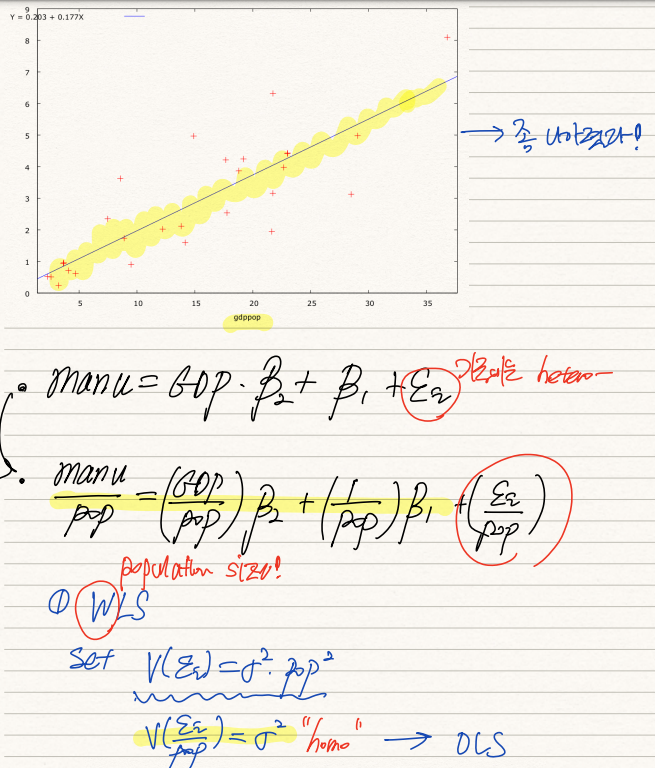 Y = 0.203 + 0.177X
9
8
7
6
5
4
3
2
1
0
5 10 15 20 25 30 35
gdppop
→ 좀 나아졌다!
• manu = GDP · β₂ + β₁ + εᵢ 기존에는 hetero-
• manu/pop = (GDP/pop) β₂ + (1/pop) β₁ + (εᵢ/pop)
population size!
① WLS
Set V(εᵢ) = σ² · pop²
V(εᵢ/pop) = σ² "homo" → OLS